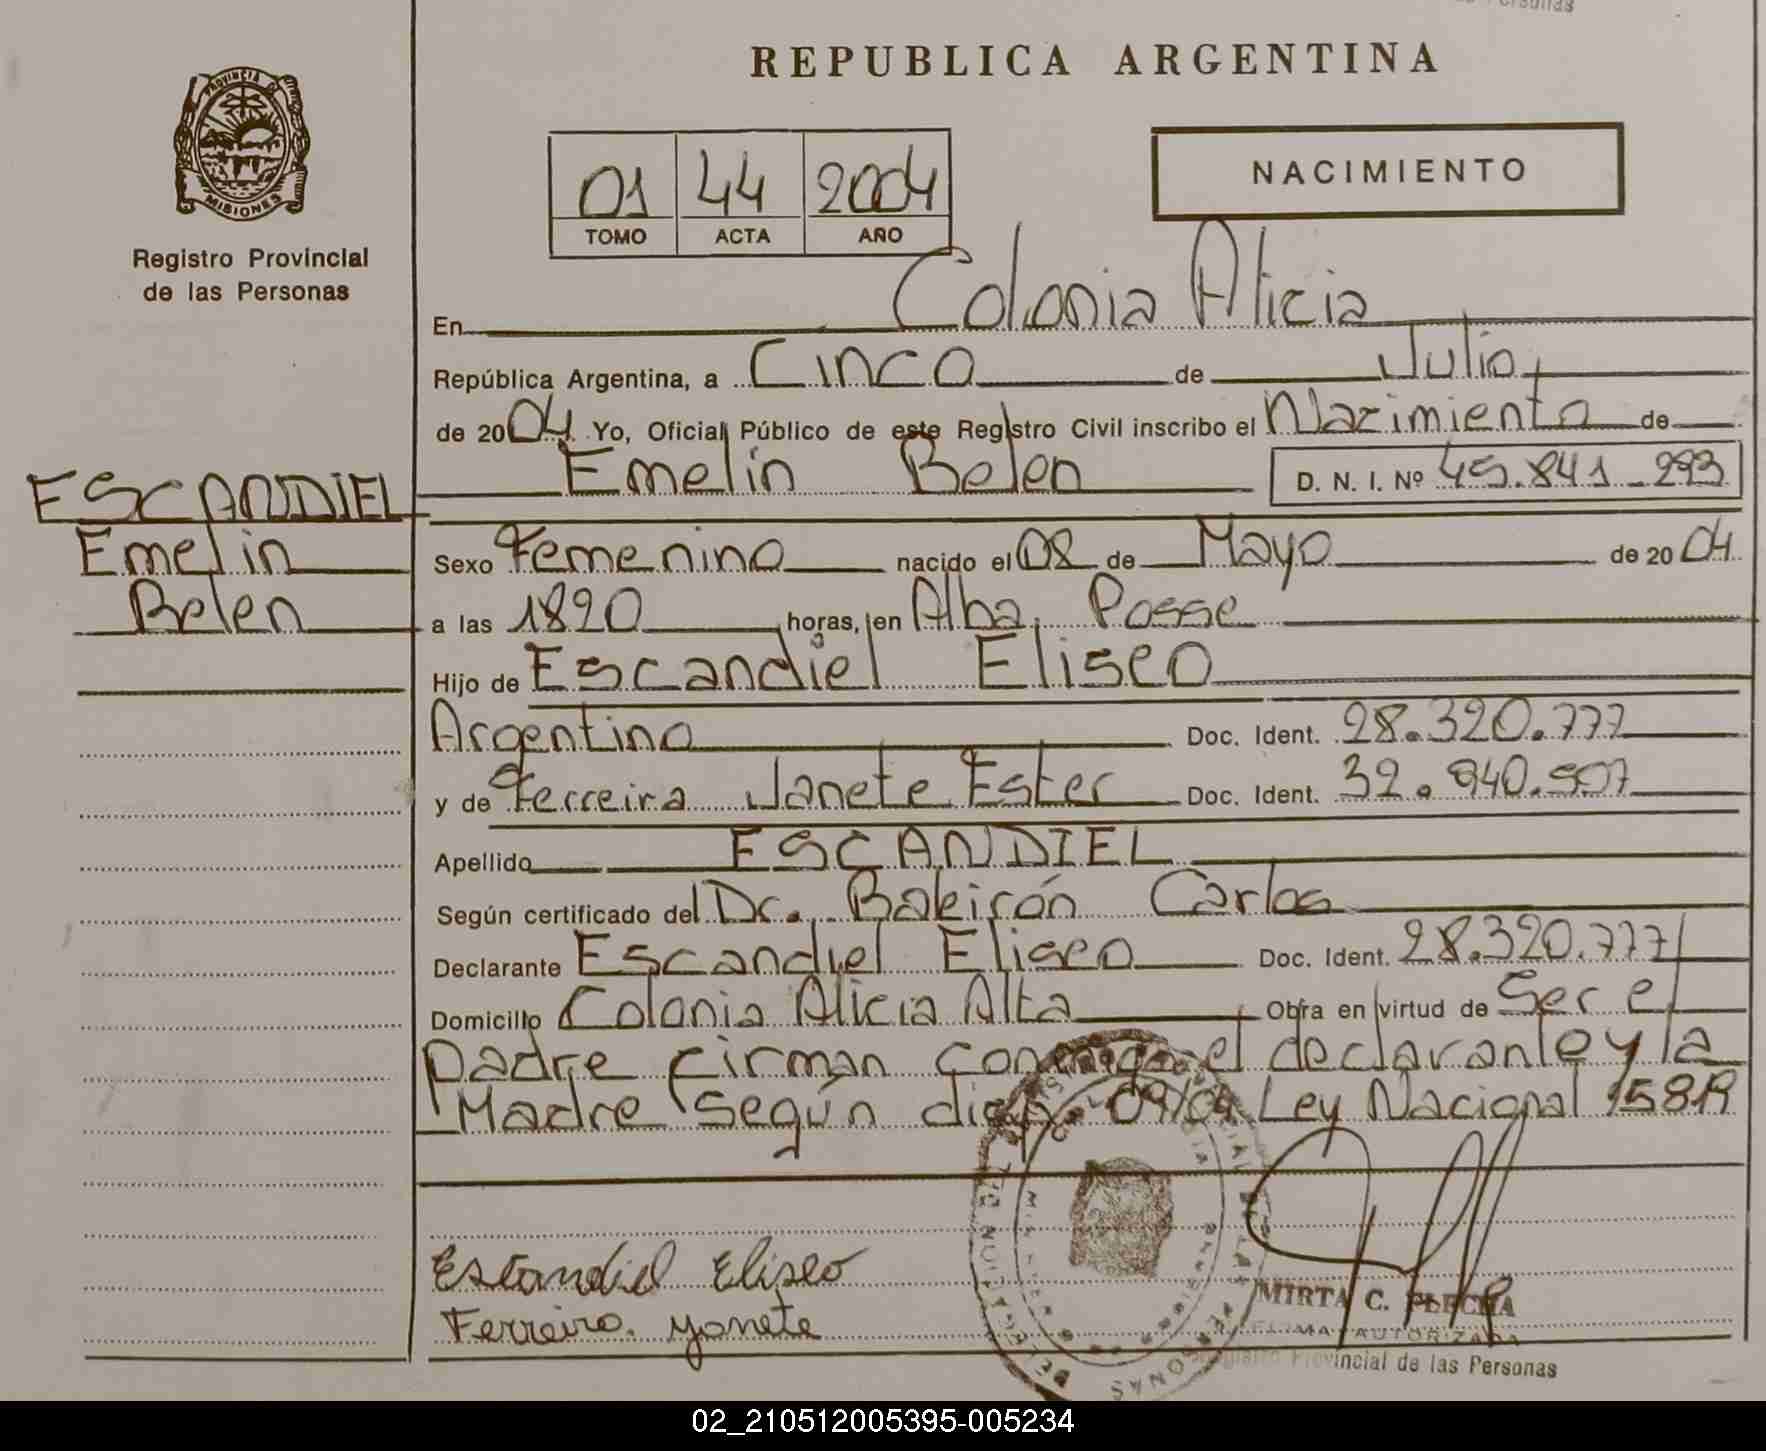 REPUBLICA ARGENTINA
PROVINCIA DE
MISIONES
Registro Provincial
de las Personas
01 44 2004
TOMO ACTA AÑO
NACIMIENTO
En Colonia Alicia
República Argentina, a Cinco de Julio
de 2004 Yo, Oficial Público de este Registro Civil inscribo el Nacimiento de
Emelin Belen D. N. I. Nº 45.841.293
ESCANDIEL
Emelin
Belen
Sexo Femenino nacido el 08 de Mayo de 2004
a las 1820 horas, en Alba Posse
Hijo de Escandiel Eliseo
Argentino Doc. Ident. 28.320.777
y de Ferreira Janete Ester Doc. Ident. 32.940.507
Apellido ESCANDIEL
Según certificado del Dr. Carlos
Declarante Escandiel Eliseo Doc. Ident. 28.320.777
Domicilio Colonia Alicia Alta Obra en virtud de Ser el
padre firman conmigo el declarante y la
Madre según 09/04 Ley Nacional
Escandiel Eliseo
Ferreira. Yanete
MIRTA C. FLECHA
FIRMA AUTORIZADA
Registro Provincial de las Personas
02_210512005395-005234